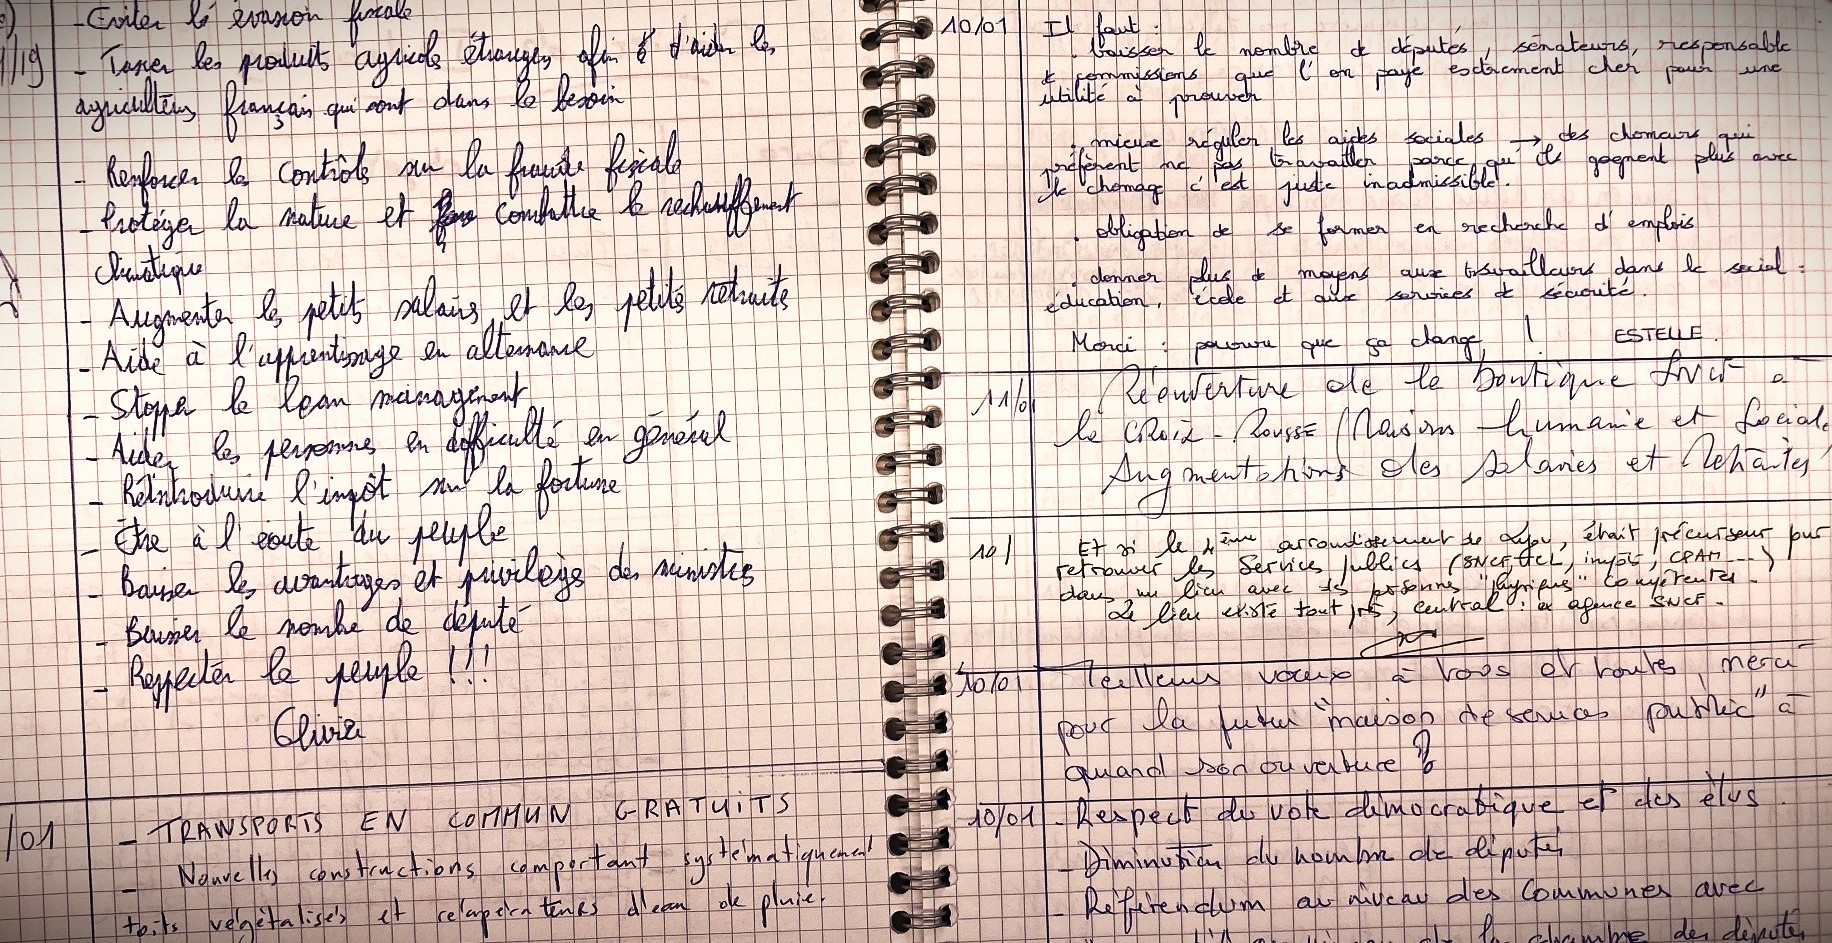 - Eviter l'évasion fiscale
/19
- Taxer les produits agricols étrangers afin d'aider les
agriculteurs français qui sont dans le besoin
- Renforcer les contrôls sur la fraude fiscale
- Protéger la nature et combattre le rechauffement
climatique
- Augmenter les petits salairs et les petits retraits
- Aide à l'apprentissage en alternance
- Stopper le lean management
- Aider les personnes en difficulté en général
- Réintroduire l'impôt sur la fortune
- Être à l'écoute du peuple
- Baisser les avantages et privilèges des ministres
- Baisser le nombre de député
- Respecter le peuple !!!
Olivier
/01
- TRANSPORTS EN COMMUN GRATUITS
- Nouvelles constructions comportant systématiquement
toits végétalisés et récupérateurs d'eau de pluie.
10/01
Il faut :
. baisser le nombre de députés, sénateurs, responsable
de commissions que l'on paye extrement cher pour une
utilité à prouver
. mieux réguler les aides sociales → des chomeurs qui
préfèrent ne pas travailler parce qu'ils gagnent plus avec
le chomage c'est juste inadmissible.
. obligation de se former en recherche d'emplois
. donner plus de moyens aux travailleurs dans le social :
éducation, école et aux services de sécurité.
Merci : pourvu que ça change ! ESTELLE.
11/01
Réouverture de la boutique SNCF à
la CROIX-ROUSSE (Raisons humanie et sociale
Augmentations des salaries et Retraités
10/
Et si le 4ème arrondissement de Lyon, était précurseur pour
retrouver les Services publics (SNCF, TCL, impôts, CPAM ---)
dans un lieu avec des personnes "physiques" compétentes.
Le lieu existe tout prêt, central : ex agence SNCF.
10/01
Meilleurs voeux à tous et toutes, merci
pour la futur "maison de services public" à
quand son ouverture ?
10/01
- Respect du vote démocratique et des élus.
- Diminution du nombre de députés
- Référendum au niveau des Communes avec
de la chambre des députés